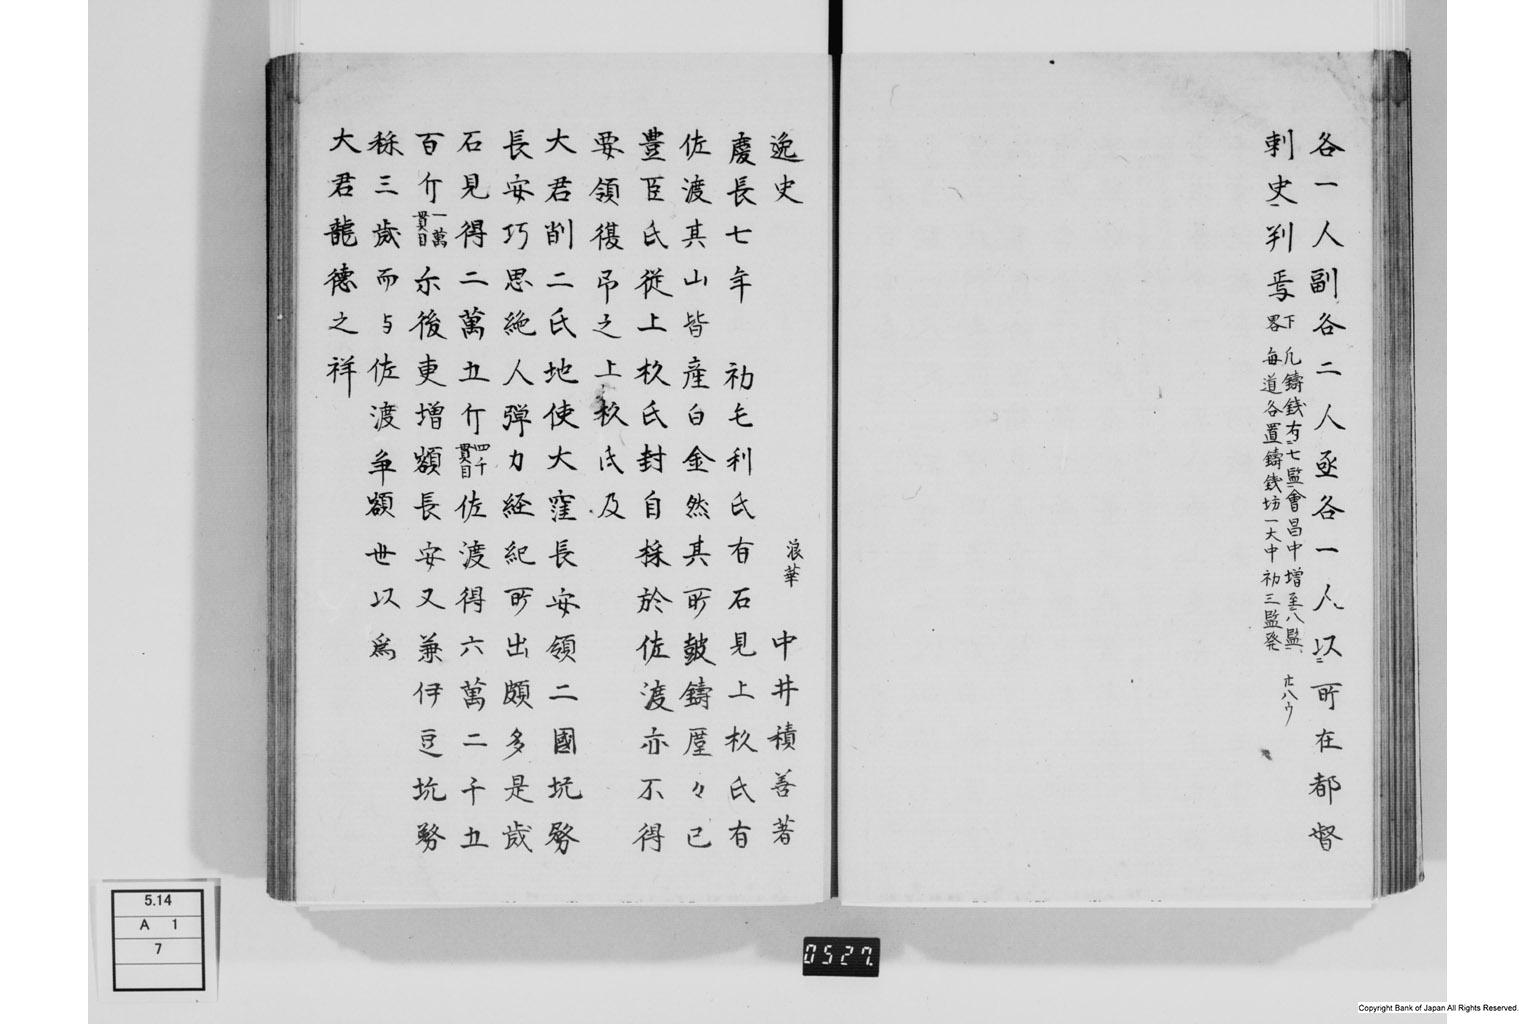 各一人副各二人丞各一人以所在都督
刺史判焉 下畧 凡鑄銭有七監會昌中増至八監
毎道各置鑄銭坊一大中初三監発
廿八ウ
逸史 浪華 中井積善著
慶長七年 初毛利氏有石見上杦氏有
佐渡其山皆産白金然其所皷鑄厪々已
豊臣氏従上杦氏封自採於佐渡亦不得
要領復帋之上杦氏及
大君削二氏地使大窪長安領二國坑務
長安巧思絶人彈力経紀所出頗多是歳
石見得二萬五千斤 四千貫目 佐渡得六萬二千五
百斤 一萬貫目 尓後更増額長安又兼伊豆坑務
稌三歳而与佐渡争額世以為
大君龍徳之祥
5.14
A 1
7
0527.
Copyright Bank of Japan All Rights Reserved.